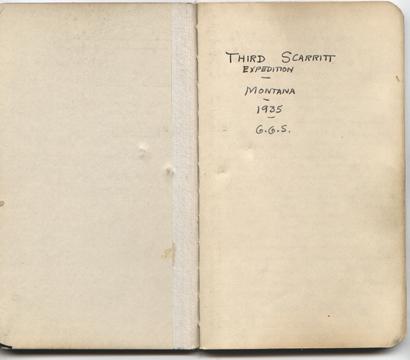 THIRD SCARRITT
EXPEDITION
MONTANA
1935
G.G.S.